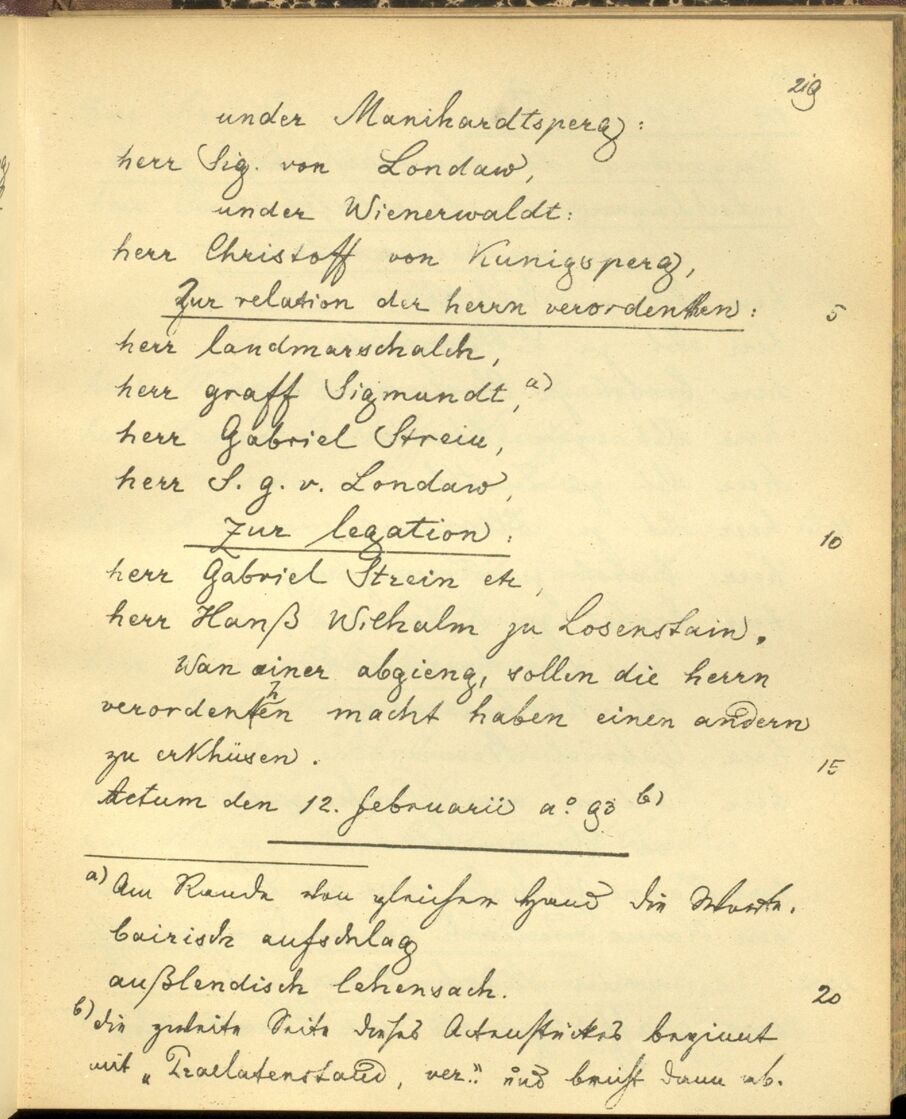 219
under Manihardtsperg:
herr Sig. von Londaw,
under Wienerwaldt:
herr Christoff von Kunigsperg,
Zur relation der herrn verordenthen: 5
herr landmarschalch,
herr graff Sigmundt, a)
herr Gabriel Strein,
herr S. g. v. Londaw,
Zur legation: 10
herr Gabriel Strein etc,
herr Hanß Wilhalm zu Losenstain.
Wan einer abgieng, sollen die herrn
verordenthen macht haben einen andern
zu erkhüsen. 15
Actum den 12. februarii a° 93 b)
a) Am Rande von gleicher Hand die Worte.
bairisch aufschlag
außlendisch lehensach. 20
b) die zweite Seite dieses Actenstückes beginnt
mit „Praelatenstand, ver." und bricht dann ab.